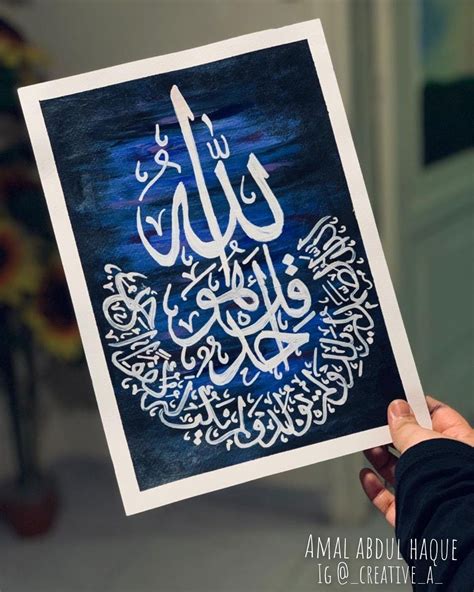 قل هو الله أحد
الله الصمد لم يلد ولم يولد ولم يكن له كفوا أحد
AMAL ABDUL HAQUE
IG @_CREATIVE_A_